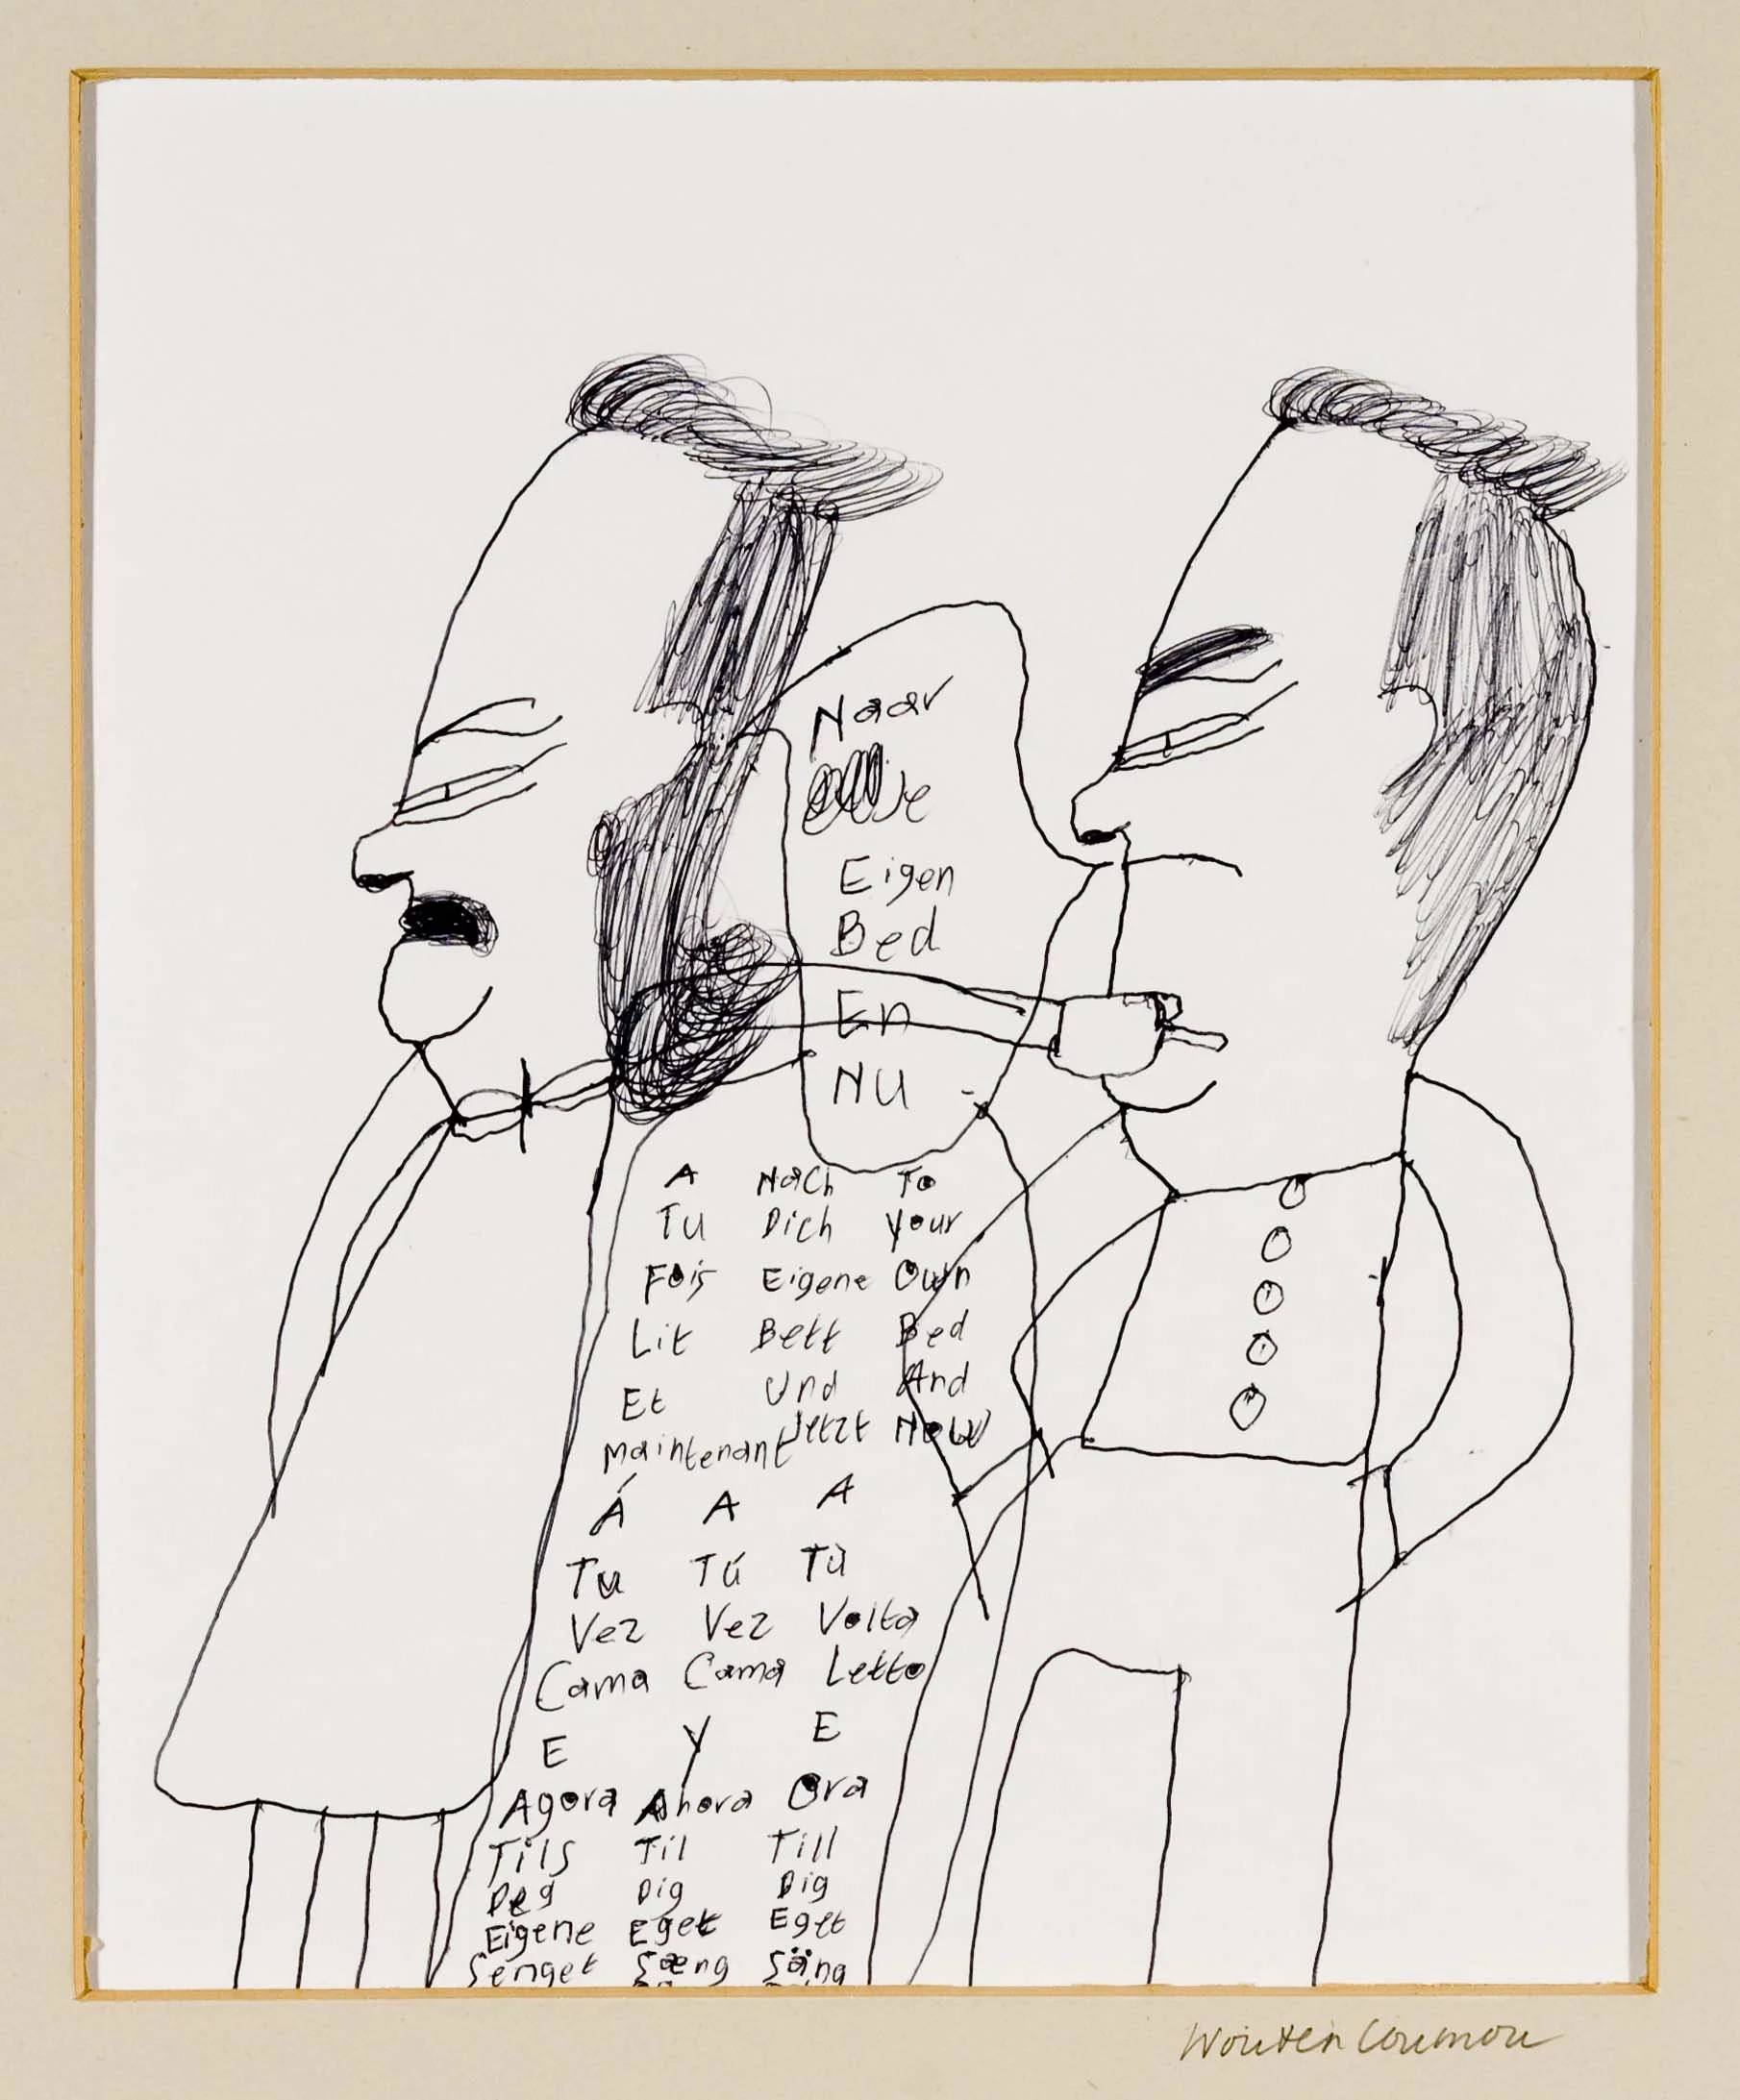 Naar
Je
Eigen
Bed
En
NU
A Nach To
Tu Dich Your
Fois Eigene Own
Lit Bett Bed
Et Und And
Maintenant Jetzt Now
Á A A
Tu Tú Tù
Vez Vez Volta
Cama Cama Letto
E Y E
Agora Ahora Ora
Tils Til Till
Deg Dig Dig
Eigene Eget Eget
Senget Sæng Säng